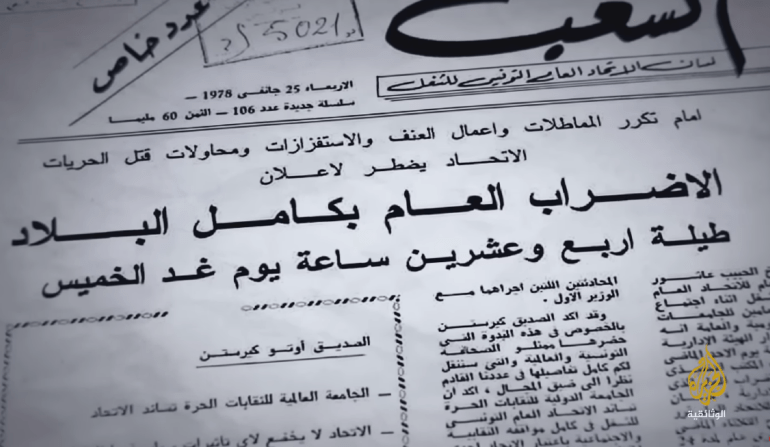 عدد خاص
5021
الشعب
لسان الاتحاد العام التونسي للشغل
الاربعاء 25 جانفى 1978 —
سلسلة جديدة عدد 106 — الثمن 60 مليما
امام تكرر المماطلات واعمال العنف والاستفزازات ومحاولات قتل الحريات
الاتحاد يضطر لاعلان
الاضراب العام بكامل البلاد
طيلة اربع وعشرين ساعة يوم غد الخميس
الحبيب عاشور
للاتحاد العام
اثناء اجتماع
للجامعات
والعامة انه
الهيئة الادارية
يوم الاحد الماضي
المحادثتين اللتين اجراهما مع
الوزير الاول .
وقد اكد الصديق كيرستن
بالخصوص في هذه الندوة التي
حضرها ممثلو الصحافة
التونسية والعالمية والتي سننقل
لكم كامل تفاصيلها في عددنا القادم
نظرا الى ضيق المجال ، اكد ان
الجامعة الدولية للنقابات الحرة
تساند الاتحاد العام التونسي
للشغل في كامل مواقفه النقابية
الصديق أوتو كيرستن
— الجامعة العالمية للنقابات الحرة تساند الاتحاد
— الاتحاد لا يخضع لأي
الجزيرة
الوثائقية